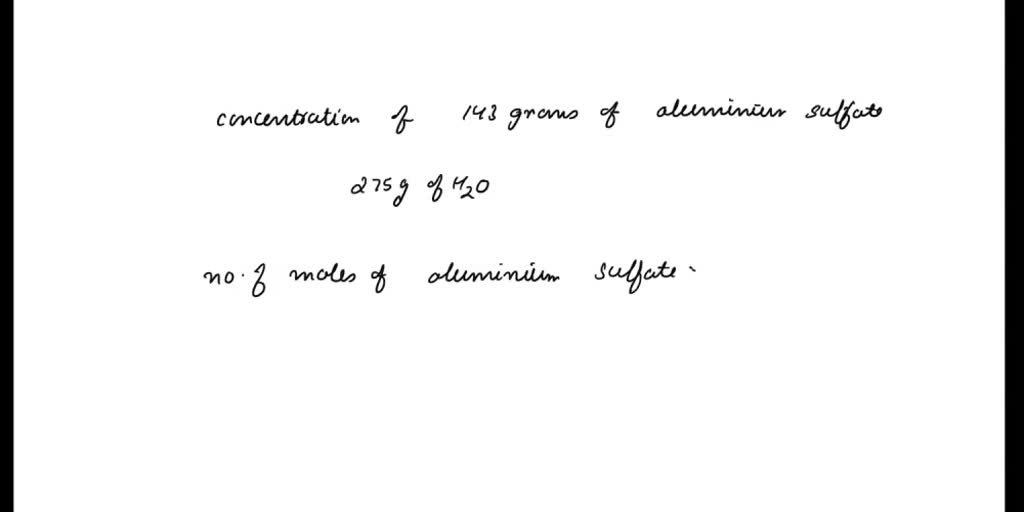 concentration of 143 grams of aluminium sulfate
275g of H2O
no. of moles of aluminium sulfate.